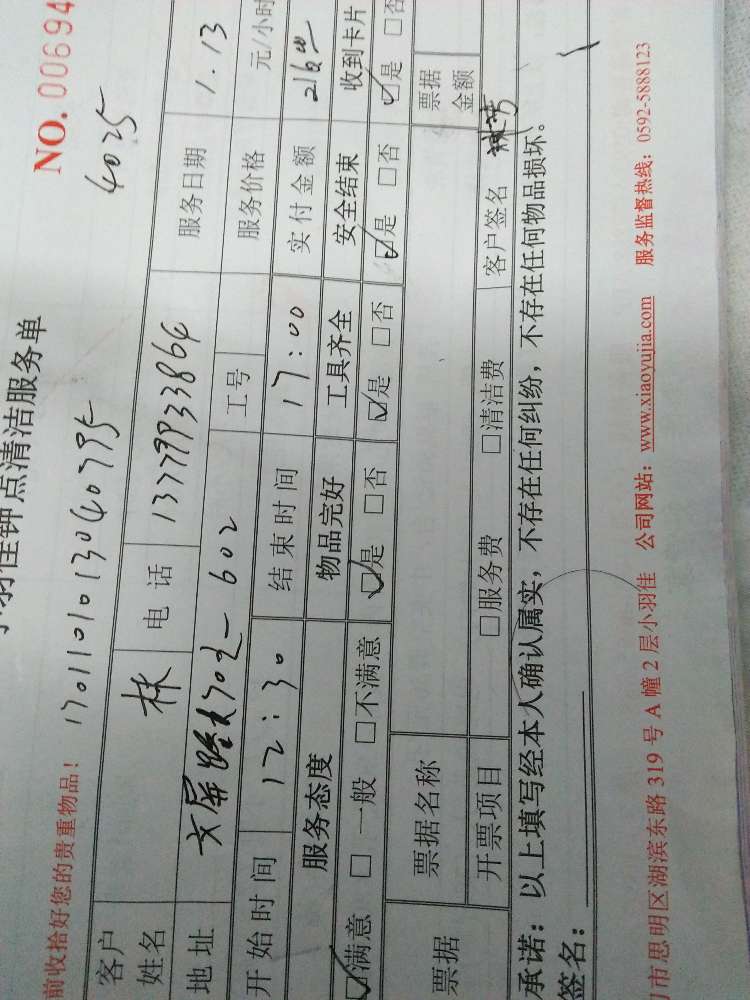 羽佳钟点清洁服务单
NO. 00694
前收拾好您的贵重物品！ 1701101013040795 4025
客户姓名 林 电话 13779933864 服务日期 1.13
地址 602 工号 服务价格 元/小时
开始时间 12:30 结束时间 17:00 实付金额
服务态度 物品完好 工具齐全 安全结束 收到卡片
☑满意 □一般 □不满意 ☑是 □否 ☑是 □否 ☑是 □否 ☑是 □否
票据 票据名称 票据金额
开票项目 □服务费 □清洁费 客户签名
承诺：以上填写经本人确认属实，不存在任何纠纷，不存在任何物品损坏。
签名：
市思明区湖滨东路 319 号 A 幢 2 层小羽佳 公司网站：www.xiaoyujia.com 服务监督热线：0592-5888123